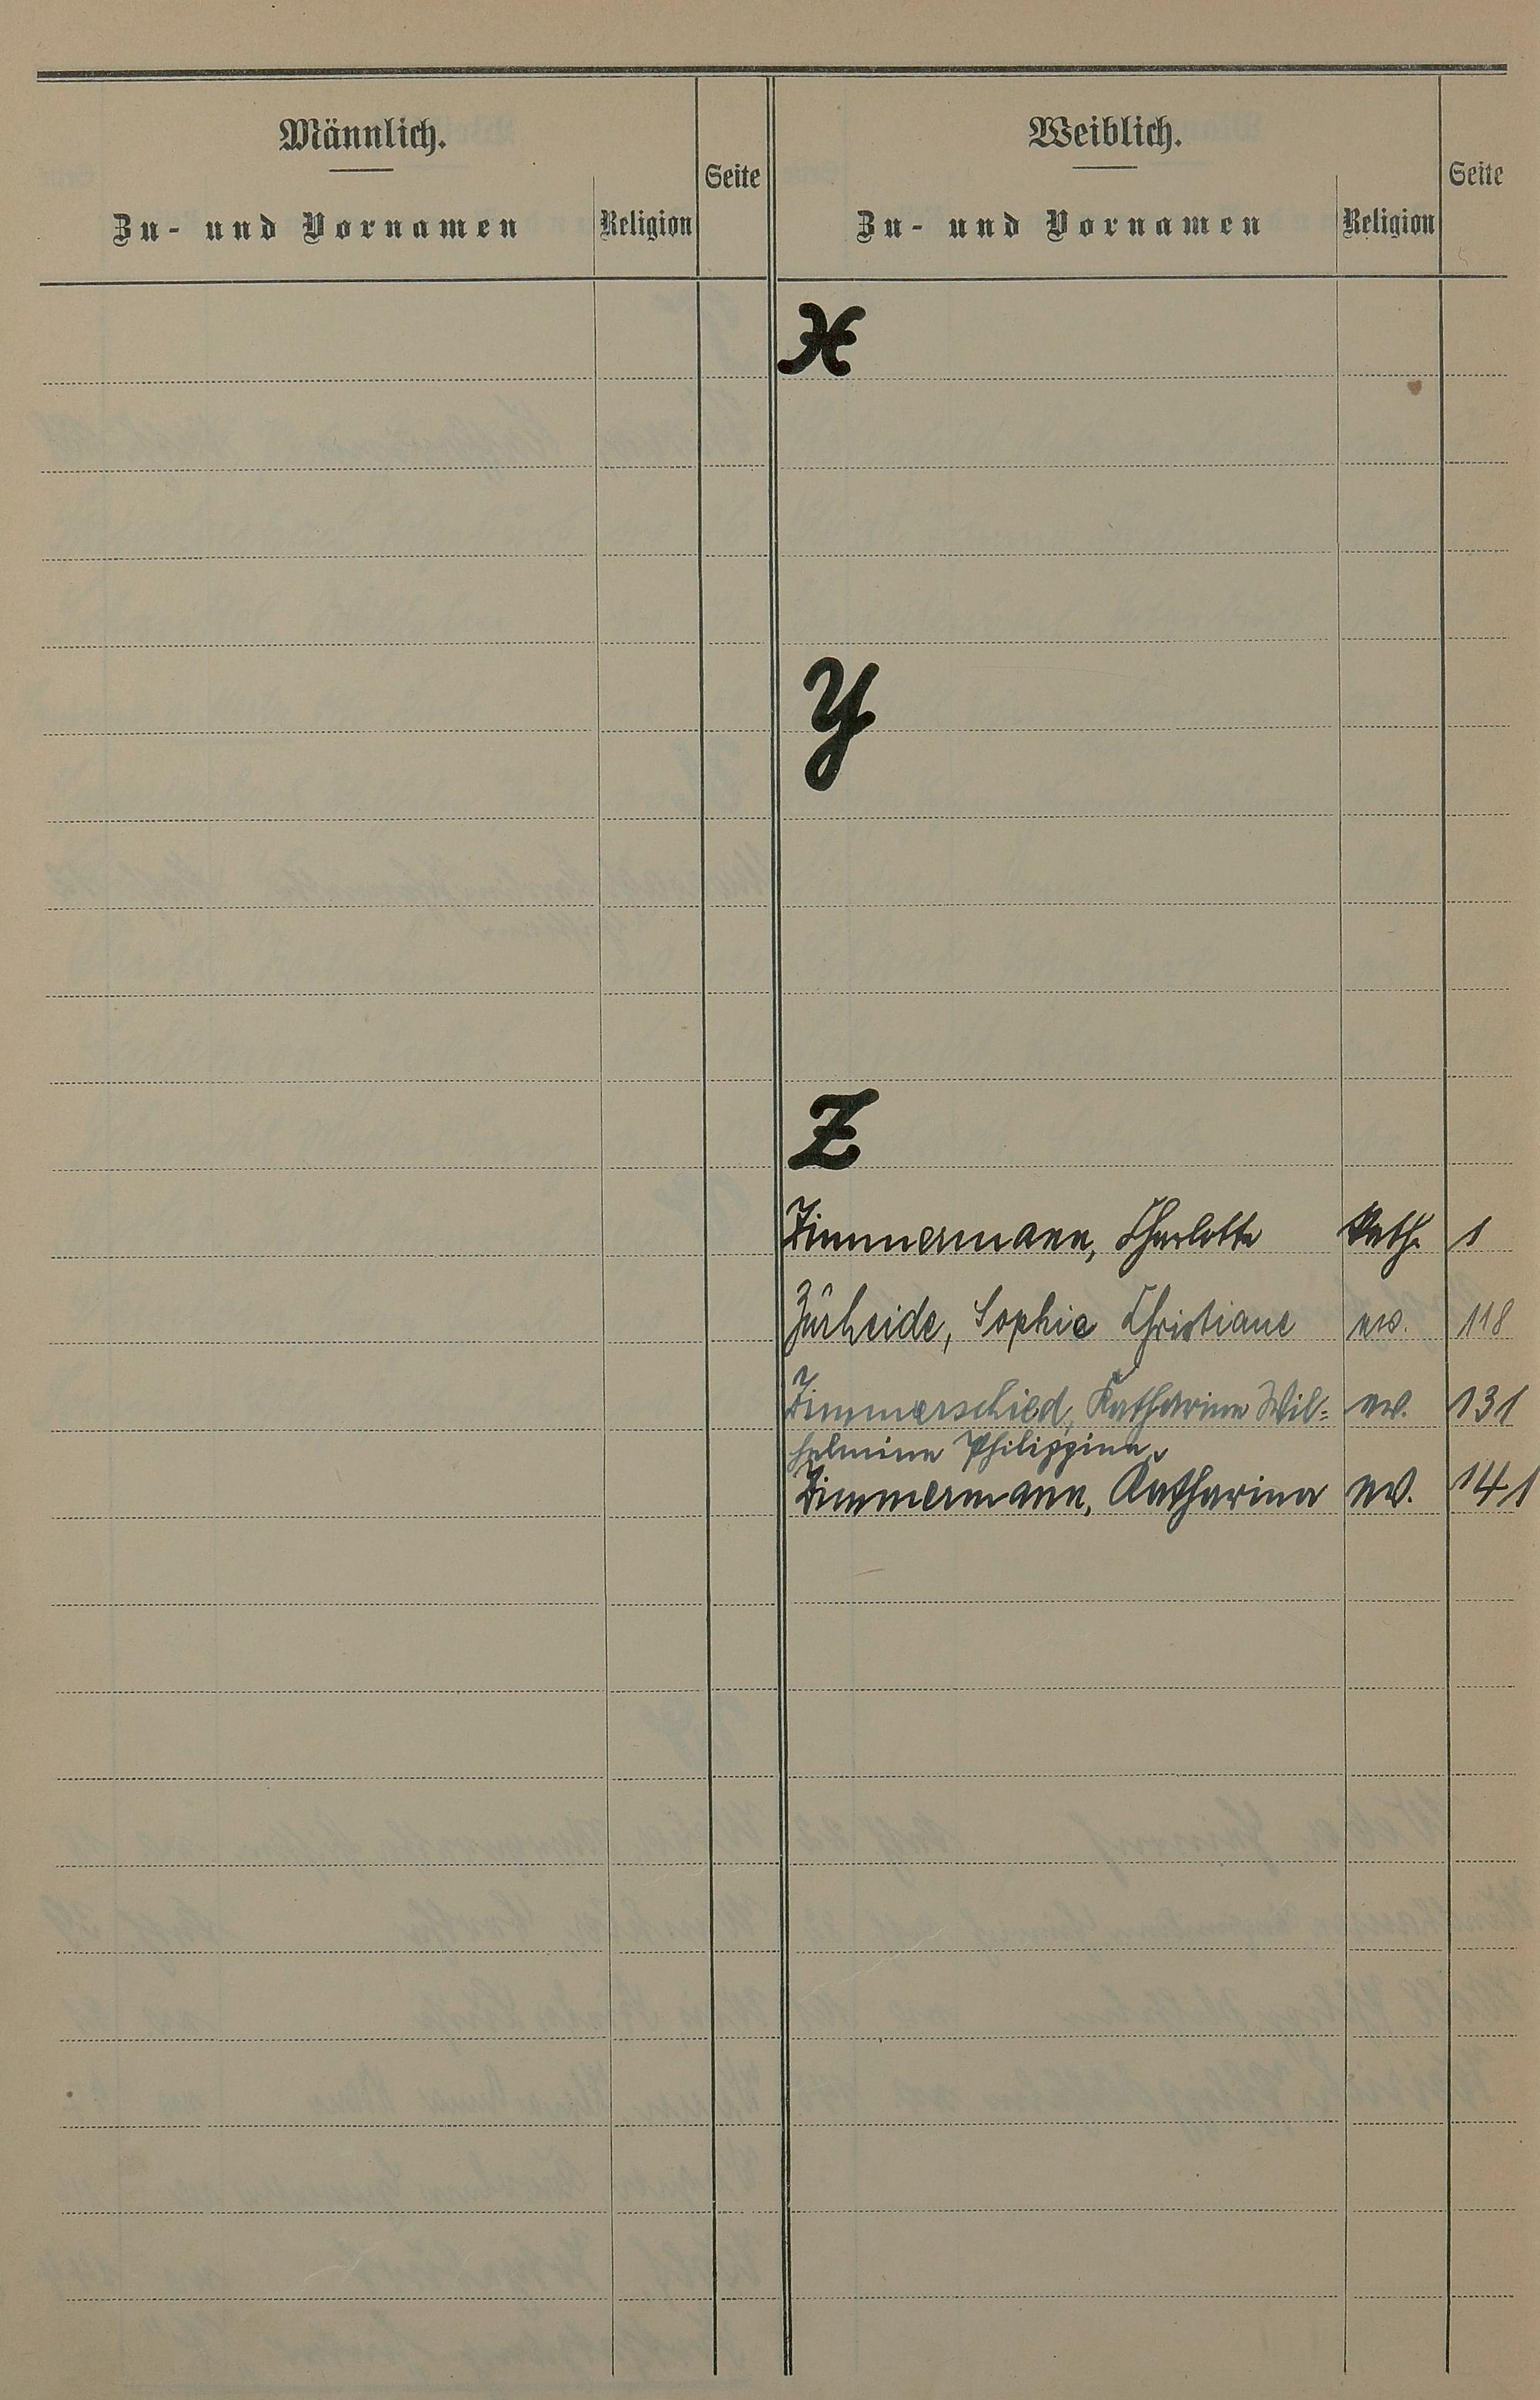 Männlich.
Zu- und Vornamen
Religion
Seite
Weiblich.
Zu- und Vornamen
Religion
Seite
X
Y
Z
Zimmermann, Charlotte Kath. 1
Zürheide, Sophie Christiane ev. 118
Zimmerschied, Katharine Wil= ev. 131
helmine Philippine
Zimmermann, Katharina ev. 141